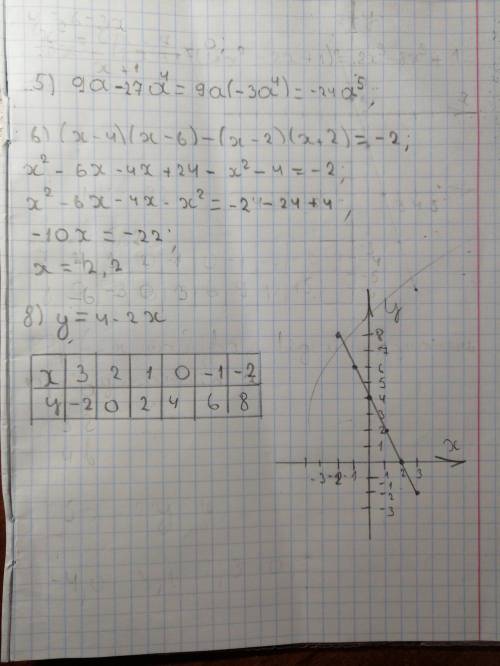 5) 9a - 27a⁴ = 9a(-3a⁴) = -24a⁵;
6) (x-4)(x-6)-(x-2)(x+2)=-2;
x²-6x-4x+24-x²-4=-2;
x²-6x-4x-x²=-2-24+4;
-10x=-22;
x=2,2
8) y=4-2x
x 3 2 1 0 -1 -2
y -2 0 2 4 6 8
y
8
7
6
5
4
3
2
1
x
-3 -2 -1 1 2 3
-1
-2
-3